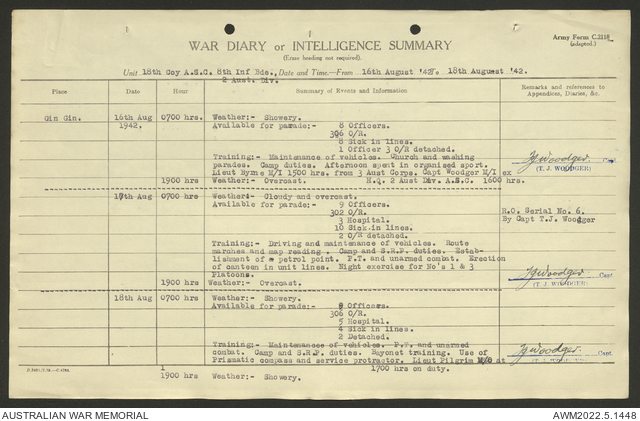 Army Form C.2118.
(adapted.)
WAR DIARY or INTELLIGENCE SUMMARY
(Erase heading not required).
Unit 18th Coy A.S.C. 8th Inf Bde., Date and Time.—From 16th August '42 To 18th August '42.
2 Aust. Div.
Place Date Hour Summary of Events and Information Remarks and references to Appendices, Diaries, &c.
Gin Gin. 16th Aug 0700 hrs. Weather:- Showery.
1942. Available for parade:- 8 Officers.
306 O/R.
8 Sick in lines
1 Officer 3 O/R detached.
Training:- Maintenance of vehicles. Church and washing
parades. Camp duties. Afternoon spent in organised sport.
Lieut Byrne M/I 1500 hrs. from 3 Aust Corps. Capt Woodger M/I ex
H.Q. 2 Aust Div. A.S.C. 1600 hrs.
TJWoodger Capt.
(T. J. WOODGER)
1900 hrs Weather:- Overcast.
17th Aug 0700 hrs Weather:- Cloudy and overcast.
Available for parade:- 9 Officers.
302 O/R.
3 Hospital.
10 Sick in lines.
2 O/R detached.
R.O. Serial No. 6.
By Capt T.J. Woodger
Training:- Driving and maintenance of vehicles. Route
marches and map reading. Camp and S.R.P. duties. Estab-
lishment of a petrol point. P.T. and unarmed combat. Erection
of canteen in unit lines. Night exercise for No's 1 & 3
Platoons.
TJWoodger Capt.
(T. J. WOODGER)
1900 hrs Weather:- Overcast.
18th Aug 0700 hrs Weather:- Showery.
Available for parade:- 8 Officers.
306 O/R.
5 Hospital.
4 Sick in lines.
2 Detached.
Training:- Maintenances of vehicles. P.T. and unarmed
combat. Camp and S.R.P. duties. Bayonet training. Use of
Prismatic compass and service protractor. Lieut Pilgrim M/O at
1700 hrs on duty.
TJWoodger Capt.
(T. J. WOODGER)
1900 hrs Weather:- Showery.
AUSTRALIAN WAR MEMORIAL
AWM2022.5.1448